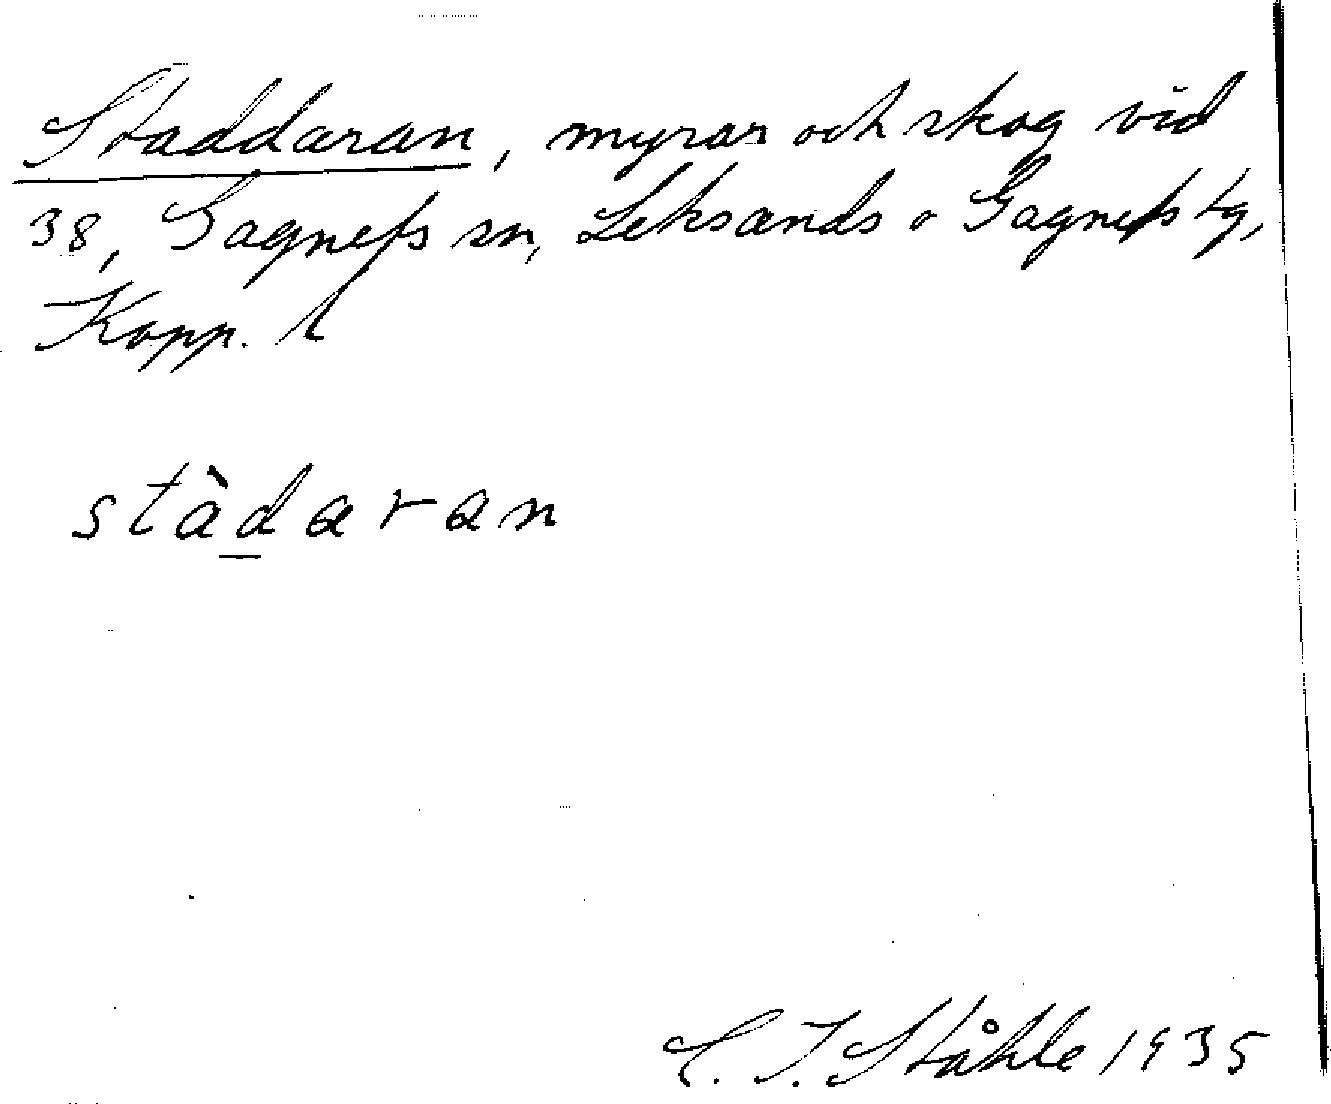 Staddaran, myrar och skog vid
38, Gagnefs sn, Leksands o Gagnefs tg,
Kopp. l
stàdaran
C. I. Ståhle 1935